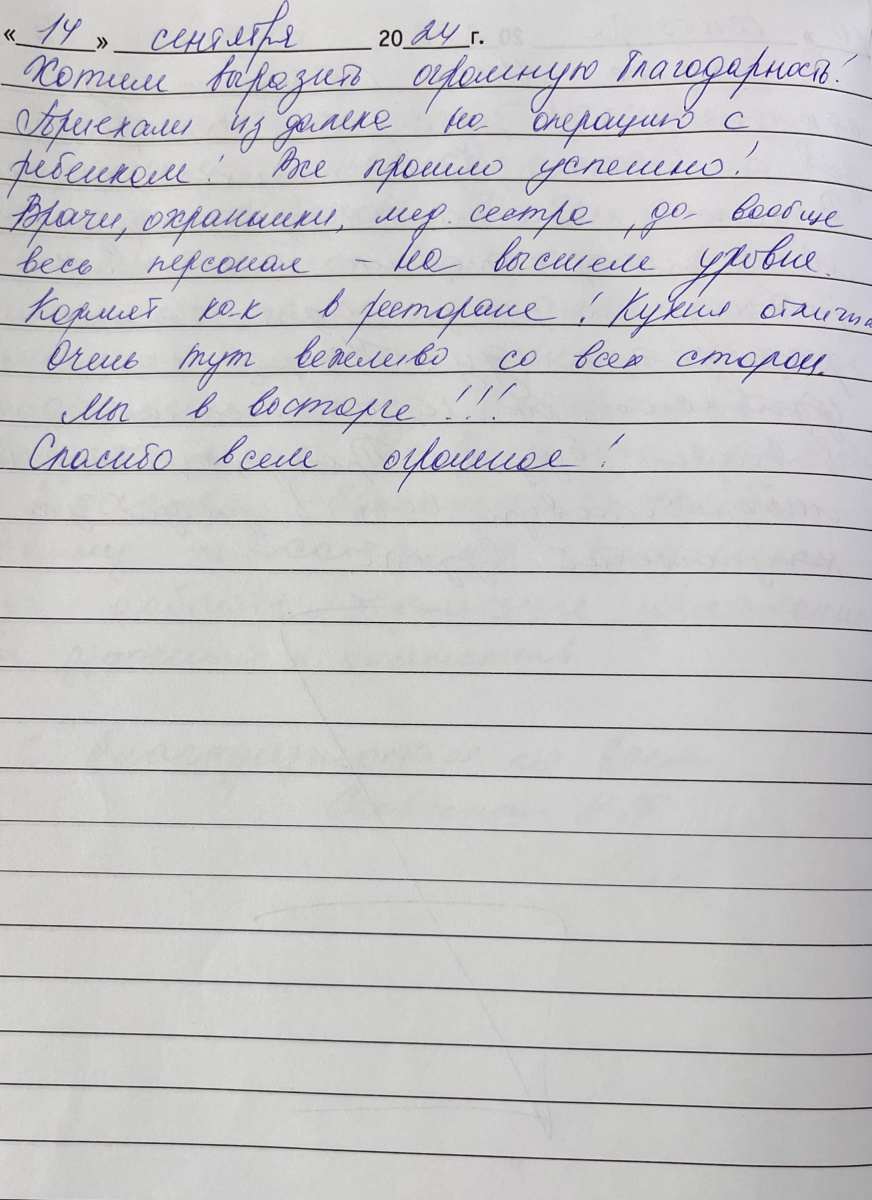 «14» сентября 2024 г.
Хотим выразить огромную благодарность!
Приехали из далека на операцию с
ребенком! Все прошло успешно!
Врачи, охранники, мед. сестра, да вообще
весь персонал – на высшем уровне.
Кормят как в ресторане! Кухня отлична
Очень тут вежливо со всех сторон.
Мы в восторге!!!
Спасибо всем огромное!